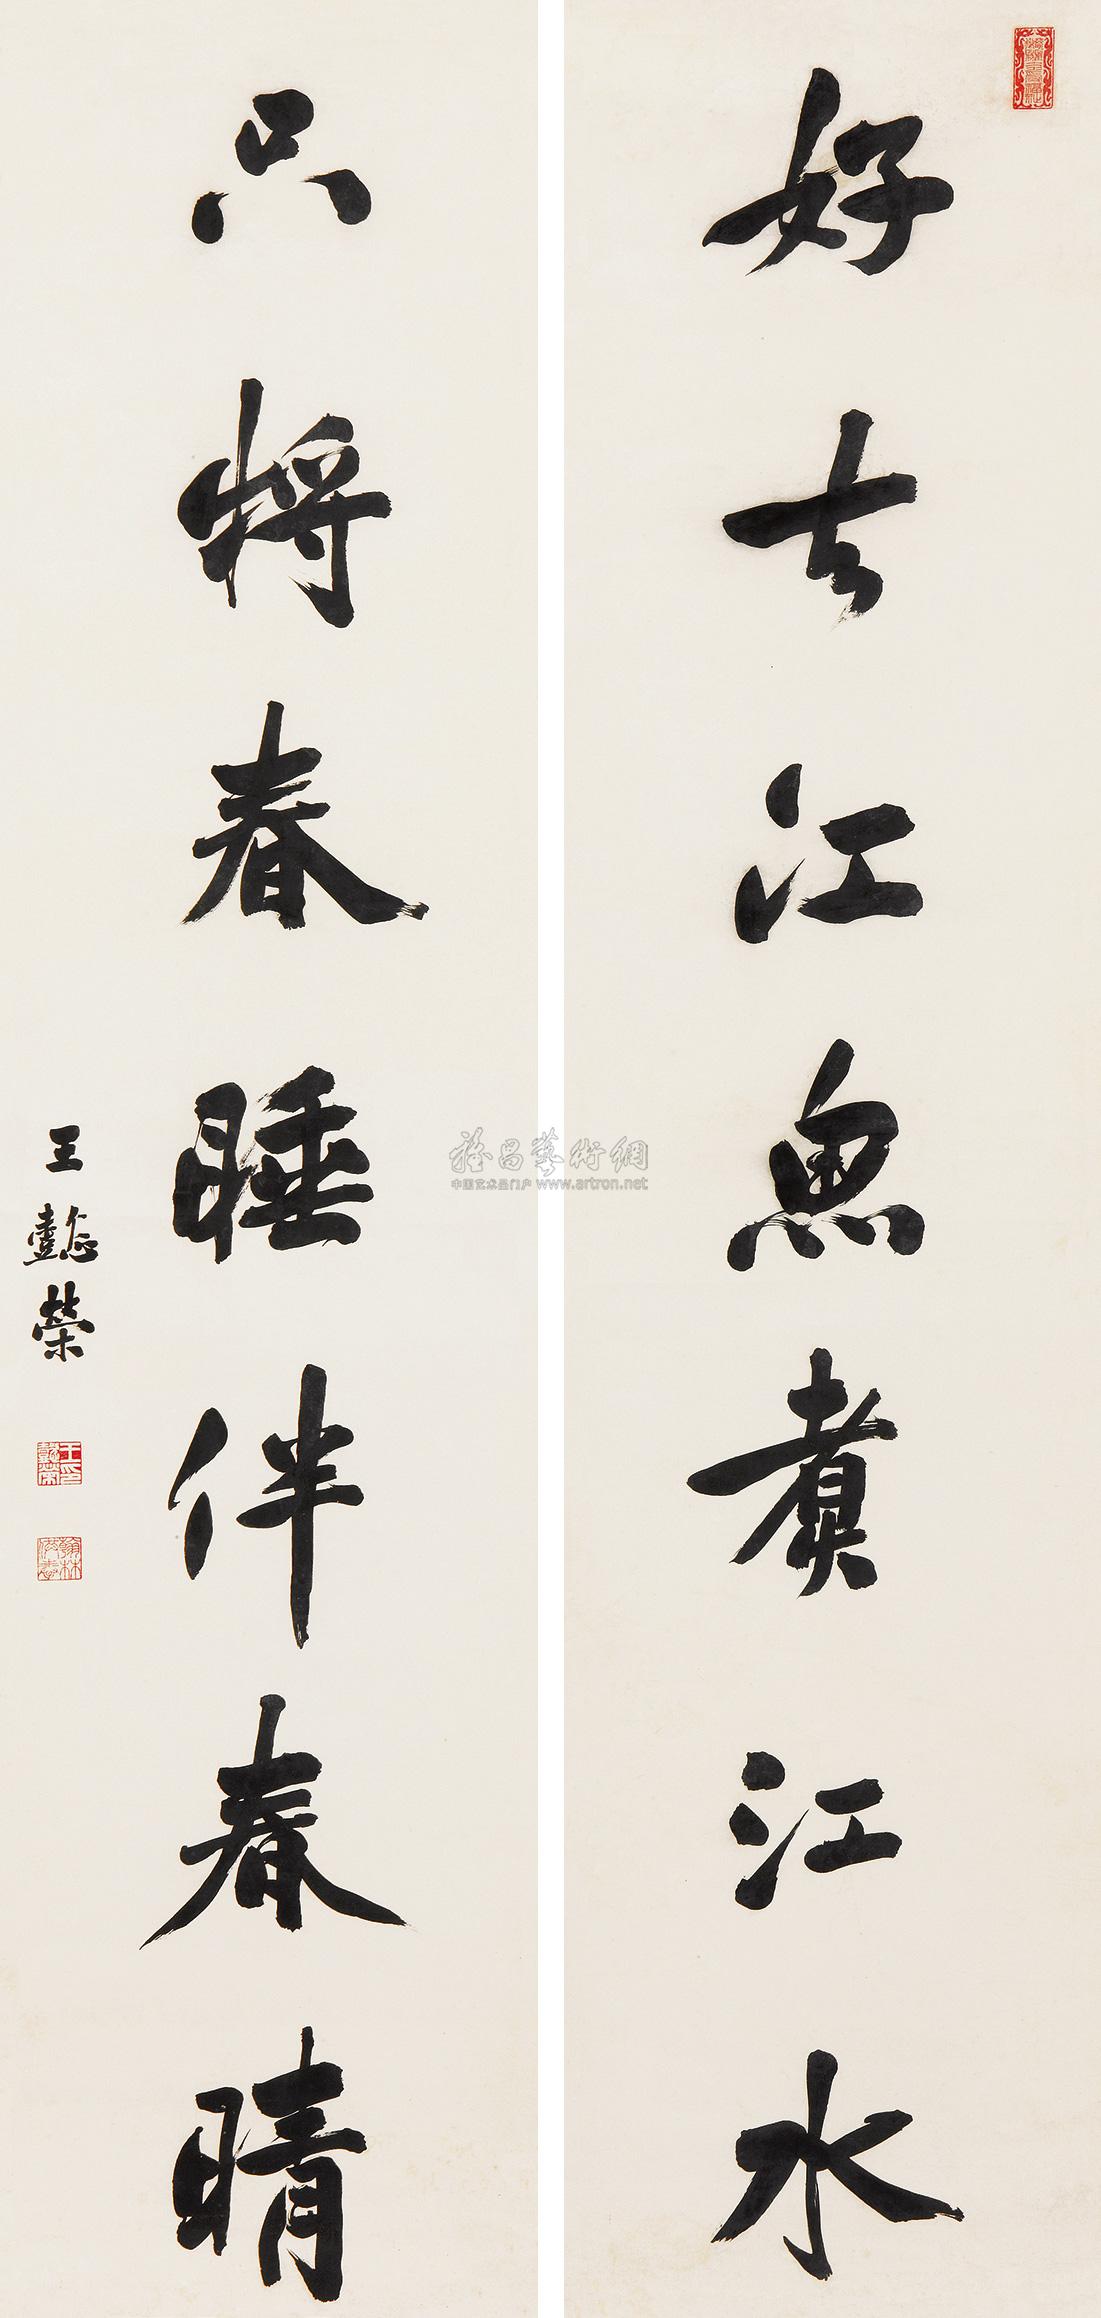 好去江魚煑江水
只將春睡伴春晴
王懿榮
王懿榮印
翰林供奉
雅昌藝術網
中国艺术品门户 www.artron.net